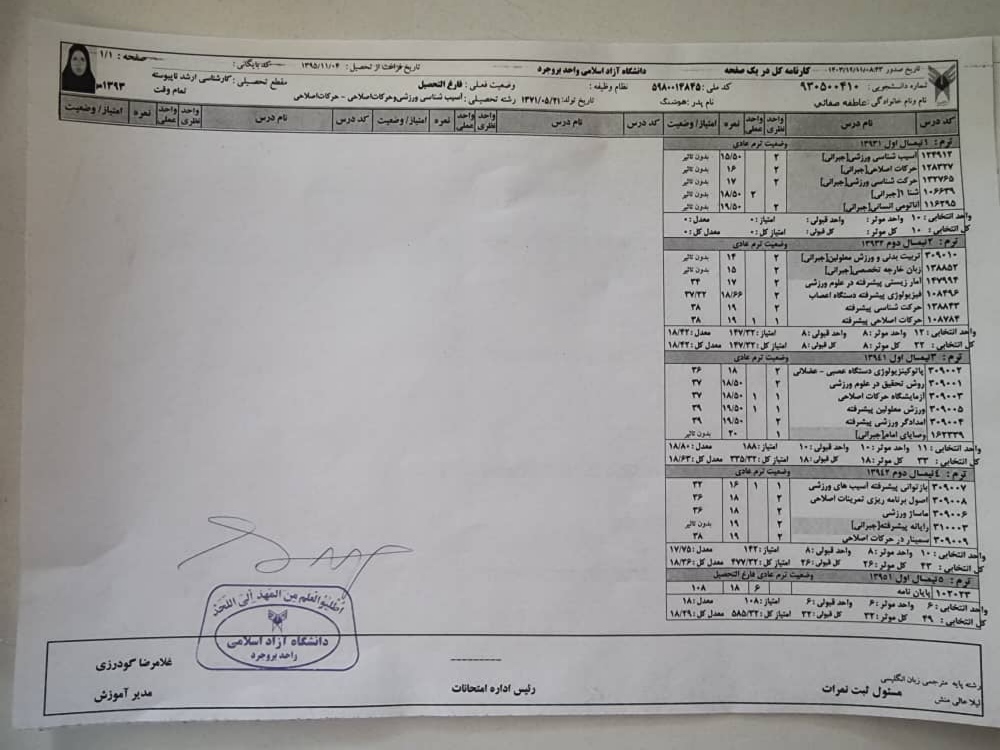 تاریخ صدور : ۱۴۰۳/۱۲/۱۱-۰۸:۴۳
کارنامه کل در یک صفحه
دانشگاه آزاد اسلامی واحد بروجرد
تاریخ فراغت از تحصیل : ۱۳۹۵/۱۱/۰۴
کدبایگانی :
صفحه : ۱/۱
شماره دانشجویی : ۹۳۰۵۰۰۴۱۰
کد ملی : ۵۹۸۰۰۱۴۸۴۵
نظام وظیفه :
وضعیت فعلی : فارغ التحصیل
مقطع تحصیلی : کارشناسی ارشد ناپیوسته
نام ونام خانوادگی : عاطفه صفائی
نام پدر : هوشنگ
تاریخ تولد: ۱۳۷۱/۰۵/۲۱
رشته تحصیلی : آسیب شناسی ورزشی وحرکات اصلاحی - حرکات اصلاحی
تمام وقت
۱۳۹۳
کد درس نام درس واحد نظری واحد عملی نمره امتیاز/ وضعیت کد درس نام درس واحد نظری واحد عملی نمره امتیاز/ وضعیت کد درس نام درس واحد نظری واحد عملی نمره امتیاز/ وضعیت
ترم : ۱نیمسال اول ۱۳۹۳۱ وضعیت ترم عادی
۱۲۴۹۱۲ آسیب شناسی ورزشی[جبرانی] ۲ ۱۵/۵۰ بدون تاثیر
۱۲۸۳۲۷ حرکات اصلاحی[جبرانی] ۲ ۱۶ بدون تاثیر
۱۳۲۷۶۵ حرکت شناسی ورزشی[جبرانی] ۲ ۱۷ بدون تاثیر
۱۰۶۶۳۹ شنا ۱[جبرانی] ۲ ۱۸/۵۰ بدون تاثیر
۱۱۶۲۹۵ اناتومی انسانی[جبرانی] ۲ ۱۹/۵۰ بدون تاثیر
واحد انتخابی : ۱۰ واحد موثر : ۰ واحد قبولی : ۰ امتیاز : ۰ معدل : ۰
کل انتخابی : ۱۰ کل موثر : ۰ کل قبولی : ۰ امتیاز کل : ۰ معدل کل : ۰
ترم : ۲نیمسال دوم ۱۳۹۳۲ وضعیت ترم عادی
۳۰۹۰۱۰ تربیت بدنی و ورزش معلولین[جبرانی] ۲ ۱۴ بدون تاثیر
۱۳۸۸۵۲ زبان خارجه تخصصی[جبرانی] ۲ ۱۵ بدون تاثیر
۱۴۷۹۹۴ آمار زیستی پیشرفته در علوم ورزشی ۲ ۱۷ ۳۴
۱۰۸۴۹۶ فیزیولوژی پیشرفته دستگاه اعصاب ۲ ۱۸/۶۶ ۳۷/۳۲
۱۳۸۸۴۳ حرکت شناسی پیشرفته ۲ ۱۹ ۳۸
۱۰۸۷۸۴ حرکات اصلاحی پیشرفته ۱ ۱ ۱۹ ۳۸
واحد انتخابی : ۱۲ واحد موثر : ۸ واحد قبولی : ۸ امتیاز : ۱۴۷/۳۲ معدل : ۱۸/۴۲
کل انتخابی : ۲۲ کل موثر : ۸ کل قبولی : ۸ امتیاز کل : ۱۴۷/۳۲ معدل کل : ۱۸/۴۲
ترم : ۳نیمسال اول ۱۳۹۴۱ وضعیت ترم عادی
۳۰۹۰۰۲ پاتوکینزیولوژی دستگاه عصبی - عضلانی ۲ ۱۸ ۳۶
۳۰۹۰۰۱ روش تحقیق در علوم ورزشی ۲ ۱۸/۵۰ ۳۷
۳۰۹۰۰۳ آزمایشگاه حرکات اصلاحی ۱ ۱ ۱۸/۵۰ ۳۷
۳۰۹۰۰۵ ورزش معلولین پیشرفته ۱ ۱ ۱۹/۵۰ ۳۹
۳۰۹۰۰۴ امدادگر ورزشی پیشرفته ۲ ۱۹/۵۰ ۳۹
۱۶۲۳۳۹ وصایای امام[جبرانی] ۱ ۲۰ بدون تاثیر
واحد انتخابی : ۱۱ واحد موثر : ۱۰ واحد قبولی : ۱۰ امتیاز : ۱۸۸ معدل : ۱۸/۸۰
کل انتخابی : ۳۳ کل موثر : ۱۸ کل قبولی : ۱۸ امتیاز کل : ۳۳۵/۳۲ معدل کل : ۱۸/۶۳
ترم : ۴نیمسال دوم ۱۳۹۴۲ وضعیت ترم عادی
۳۰۹۰۰۷ بازتوانی پیشرفته آسیب های ورزشی ۱ ۱ ۱۶ ۳۲
۳۰۹۰۰۸ اصول برنامه ریزی تمرینات اصلاحی ۲ ۱۸ ۳۶
۳۰۹۰۰۶ ماساژ ورزشی ۲ ۱۸ ۳۶
۳۱۰۰۰۳ رایانه پیشرفته[جبرانی] ۲ ۱۹ بدون تاثیر
۳۰۹۰۰۹ سمینار در حرکات اصلاحی ۲ ۱۹ ۳۸
واحد انتخابی : ۱۰ واحد موثر : ۸ واحد قبولی : ۸ امتیاز : ۱۴۲ معدل : ۱۷/۷۵
کل انتخابی : ۴۳ کل موثر : ۲۶ کل قبولی : ۲۶ امتیاز کل : ۴۷۷/۳۲ معدل کل : ۱۸/۳۶
ترم : ۵نیمسال اول ۱۳۹۵۱ وضعیت ترم عادی فارغ التحصیل
۱۰۲۰۲۳ پایان نامه ۶ ۱۸ ۱۰۸
واحد انتخابی : ۶ واحد موثر : ۶ واحد قبولی : ۶ امتیاز : ۱۰۸ معدل : ۱۸
کل انتخابی : ۴۹ کل موثر : ۳۲ کل قبولی : ۳۲ امتیاز کل : ۵۸۵/۳۲ معدل کل : ۱۸/۲۹
اطلبوا العلم من المهد الی اللحد
دانشگاه آزاد اسلامی
واحد بروجرد
رشته پایه مترجمی زبان انگلیسی
مسئول ثبت نمرات
لیلا عالی منش
رئیس اداره امتحانات
غلامرضا گودرزی
مدیر آموزش